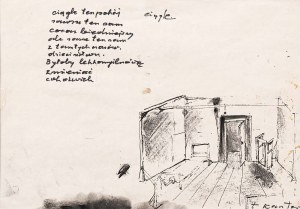 ciągle ten pokój ciągle
zawsze ten sam
coraz biedniejszy
ale zawsze ten sam
z tamtych czasów,
dzieciństwa.
Byłoby lekkomyślnością
zmieniać
cokolwiek
T Kantor